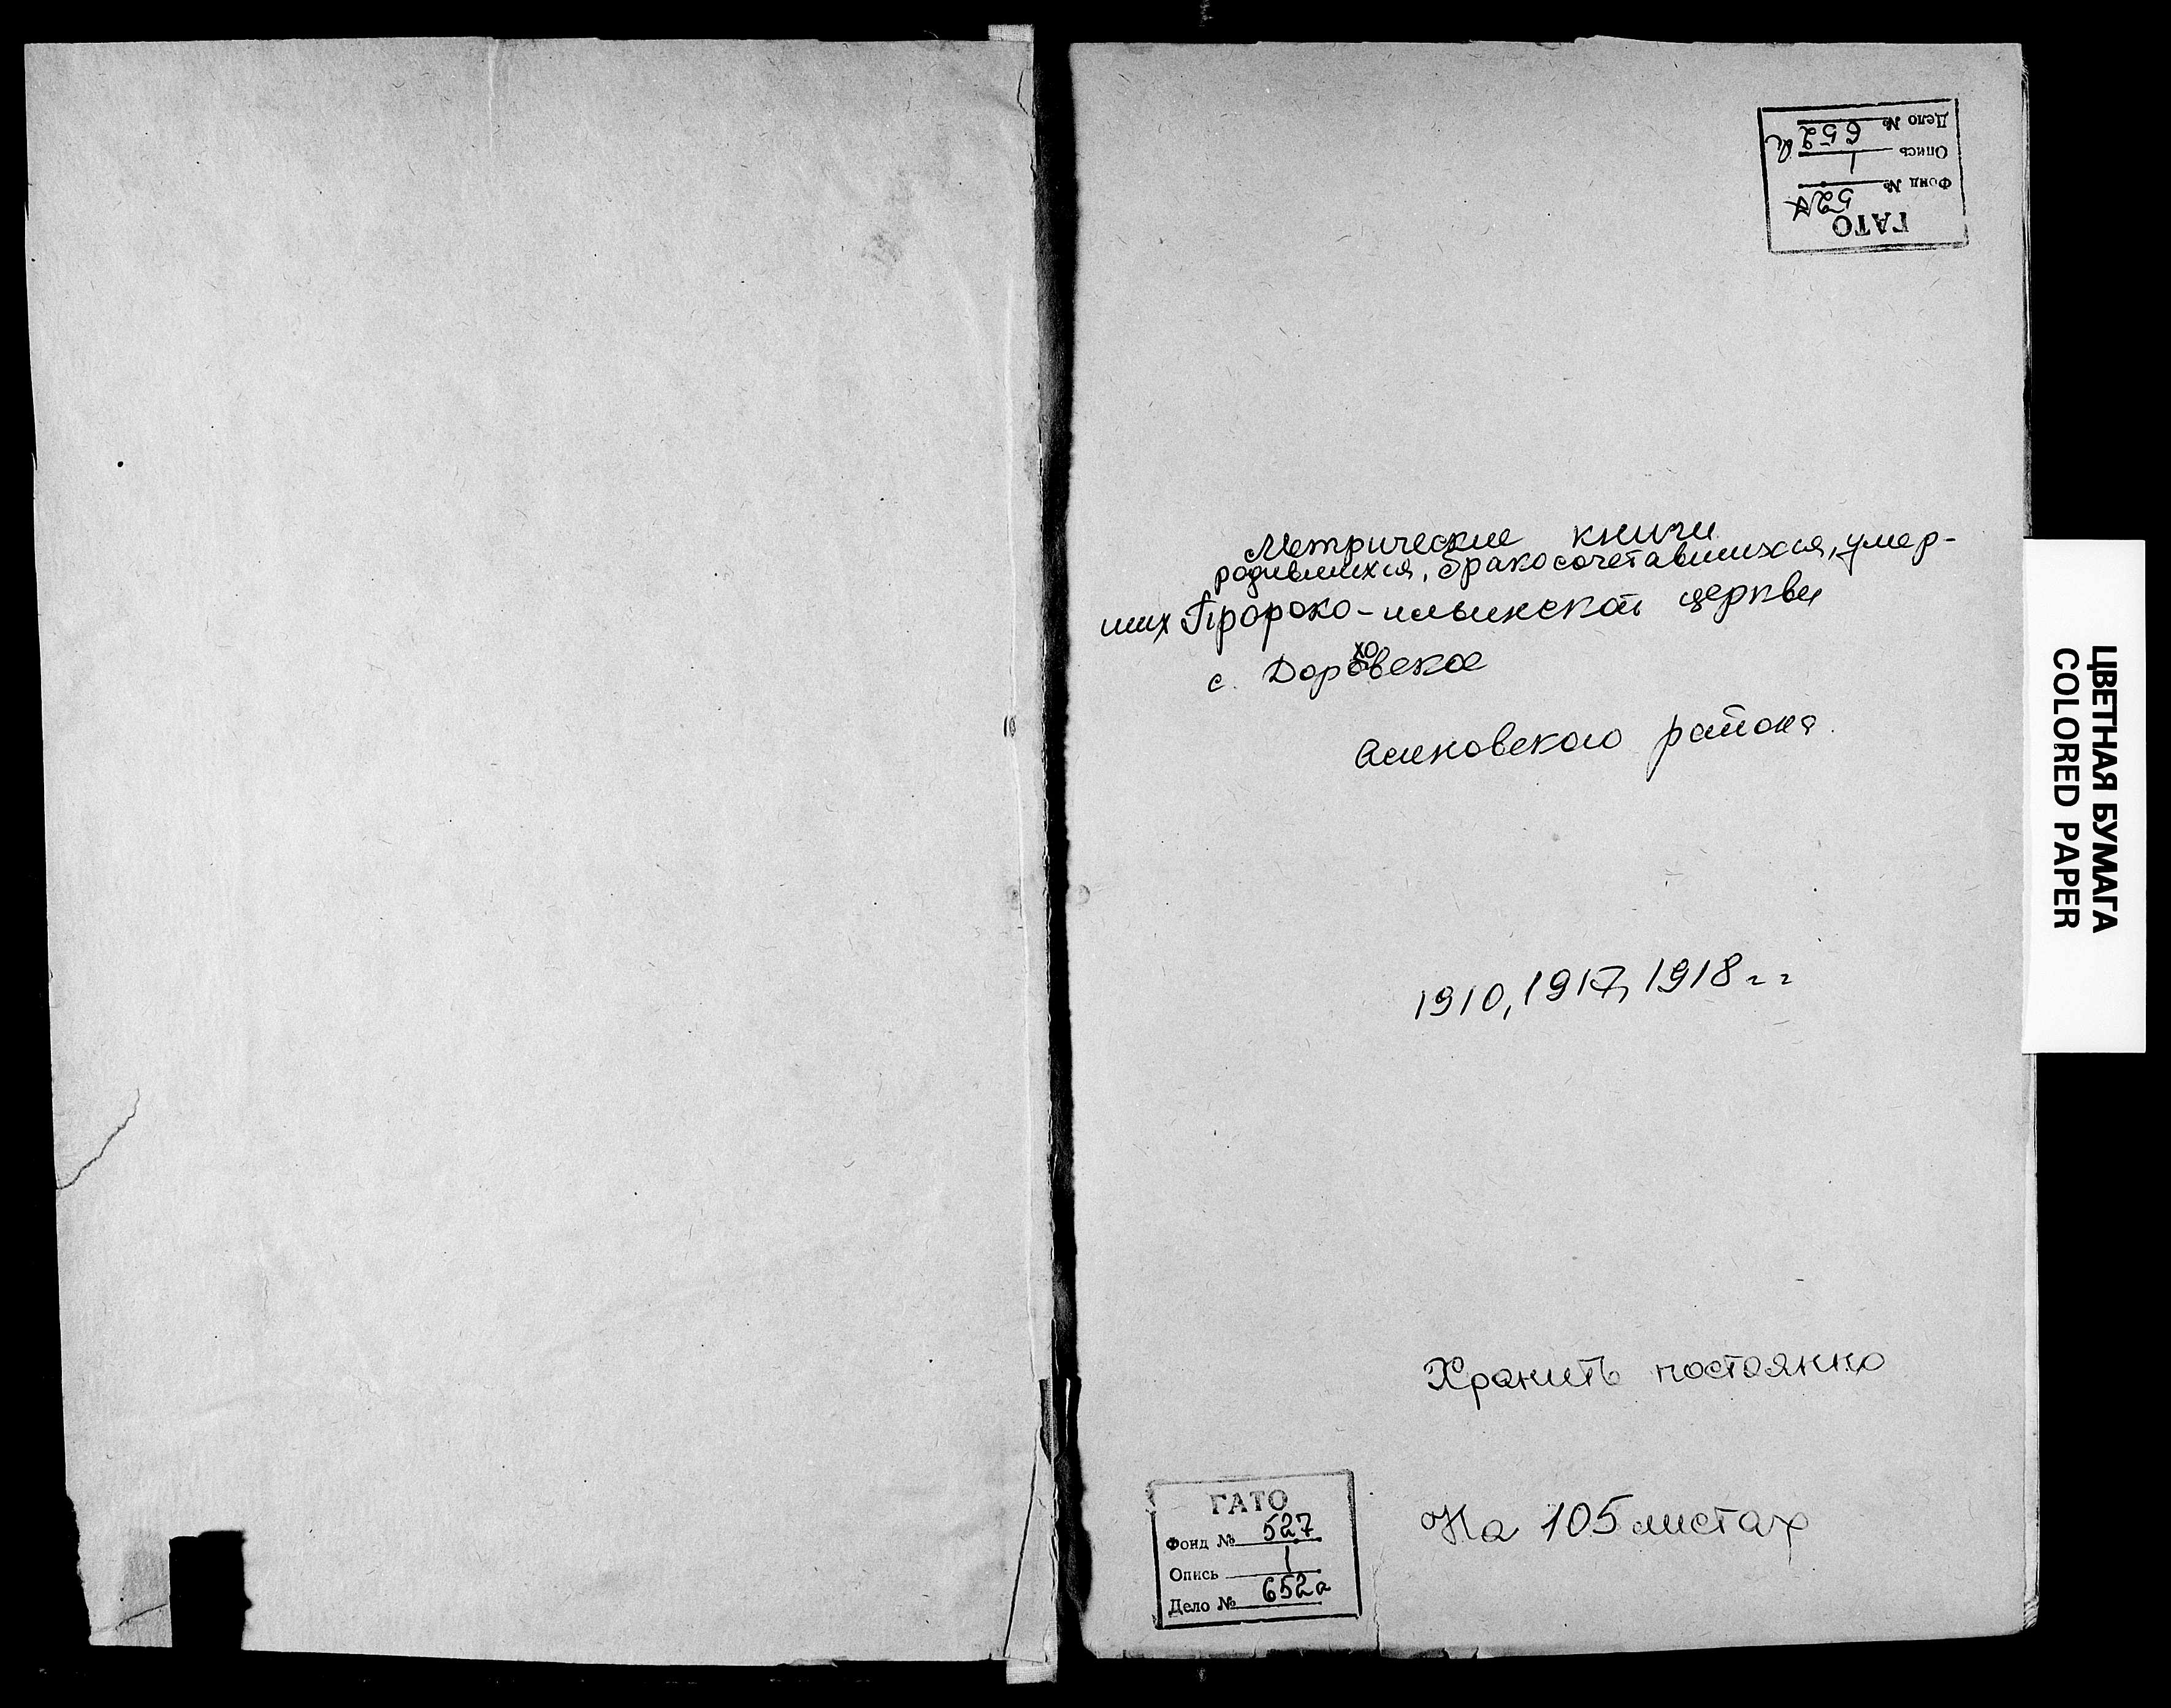 ГАТО
Фонд № 527
Опись 1
Дело № 652а
Метрические книги
родившихся, бракосочетавшихся, умер-
ших Пророко-ильинской церкви
с. Дороховское
Асиновского района.
1910, 1917, 1918 г г
Хранить постоянно
На 105 листах
ГАТО
Фонд № 527
Опись 1
Дело № 652а
ЦВЕТНАЯ БУМАГА
COLORED PAPER